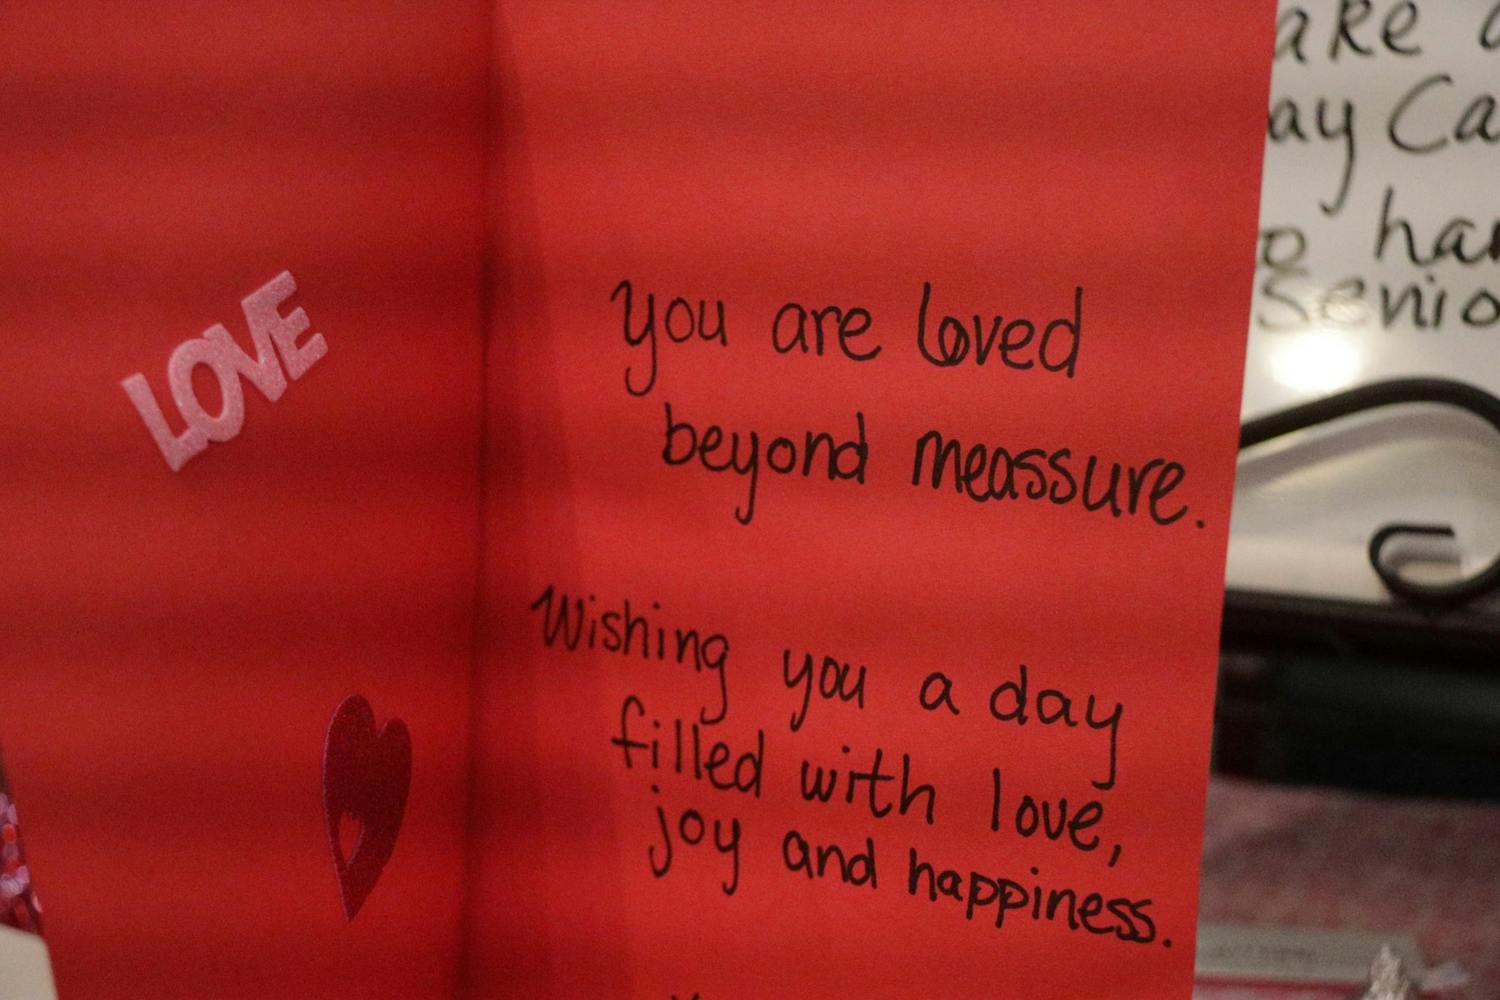 LOVE
you are loved
beyond meassure.
Wishing you a day
filled with love,
joy and happiness.
ake
ay Ca
o har
Senio